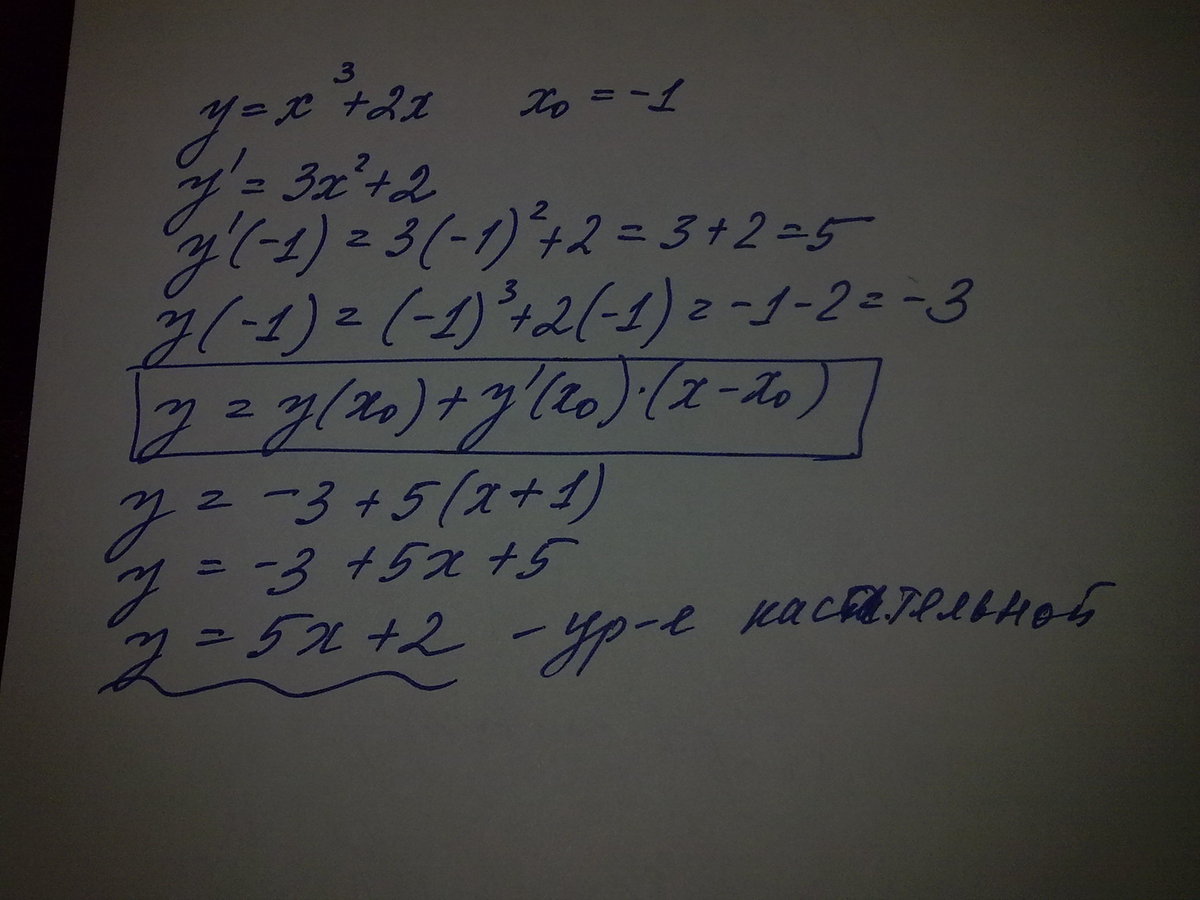 y = x³ + 2x x₀ = -1
y' = 3x² + 2
y'(-1) = 3(-1)² + 2 = 3 + 2 = 5
y(-1) = (-1)³ + 2(-1) = -1 - 2 = -3
y = y(x₀) + y'(x₀)·(x - x₀)
y = -3 + 5(x + 1)
y = -3 + 5x + 5
y = 5x + 2 - ур-е касательной